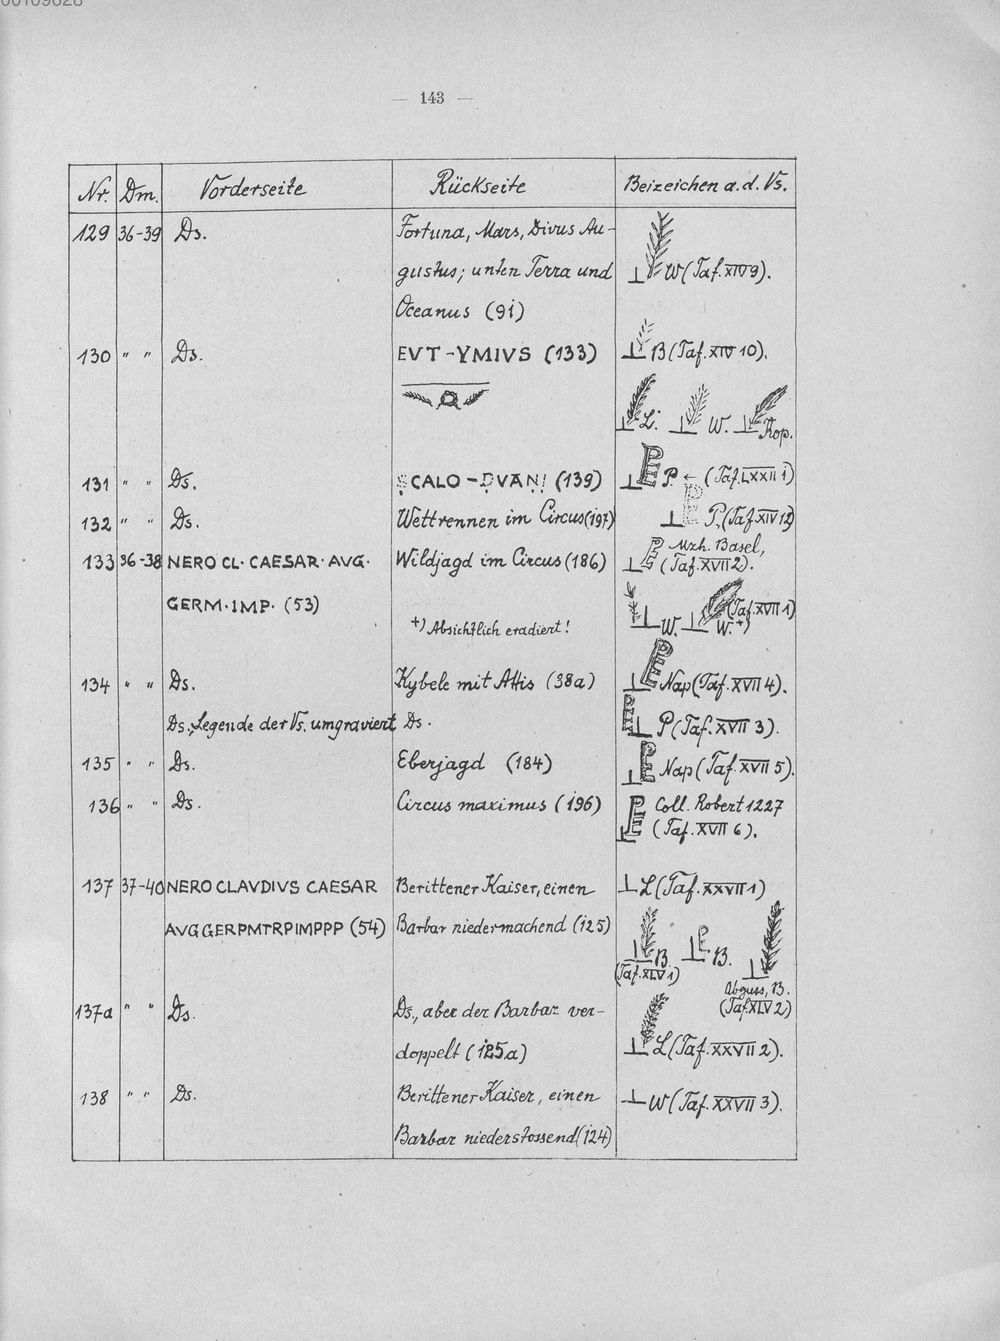 00109828
— 143 —
Nr. Dm. Vorderseite Rückseite Beizeichen a. d. Vs.
129 36-39 Ds. Fortuna, Mars, Divus Au-
gustus; unten Terra und W (Taf. XIV 9).
Oceanus (91)
130 " " Ds. EVT-YMIVS (133) B (Taf. XIV 10).
L. W. Kop.
131 " " Ds. SCALO-DVANI (139) P. ← (Taf. LXXII 1)
132 " " Ds. Wettrennen im Circus (197) P. (Taf. XIV 12)
133 36-38 NERO CL· CAESAR· AVG· Wildjagd im Circus (186) Mzh. Basel,
(Taf. XVII 2).
GERM·IMP· (53) (Taf. XVII 1)
+) Absichtlich eradiert! W. W. +)
134 " " Ds. Kybele mit Attis (38a) Nap (Taf. XVII 4).
Ds., Legende der Vs. umgraviert Ds. P (Taf. XVII 3).
135 " " Ds. Eberjagd (184) Nap (Taf. XVII 5).
136 " " Ds. Circus maximus (196) Coll. Robert 1227
(Taf. XVII 6).
137 37-40 NERO CLAVDIVS CAESAR Berittener Kaiser, einen L (Taf. XXVII 1)
AVG GER PMTRPIMPPP (54) Barbar niedermachend (125)
B. B.
(Taf. XLV 1)
Abguss, B.
(Taf. XLV 2)
137a " " Ds. Ds., aber der Barbar ver-
doppelt (125a) L (Taf. XXVII 2).
138 " " Ds. Berittener Kaiser, einen W (Taf. XXVII 3).
Barbar niederstossend (124)